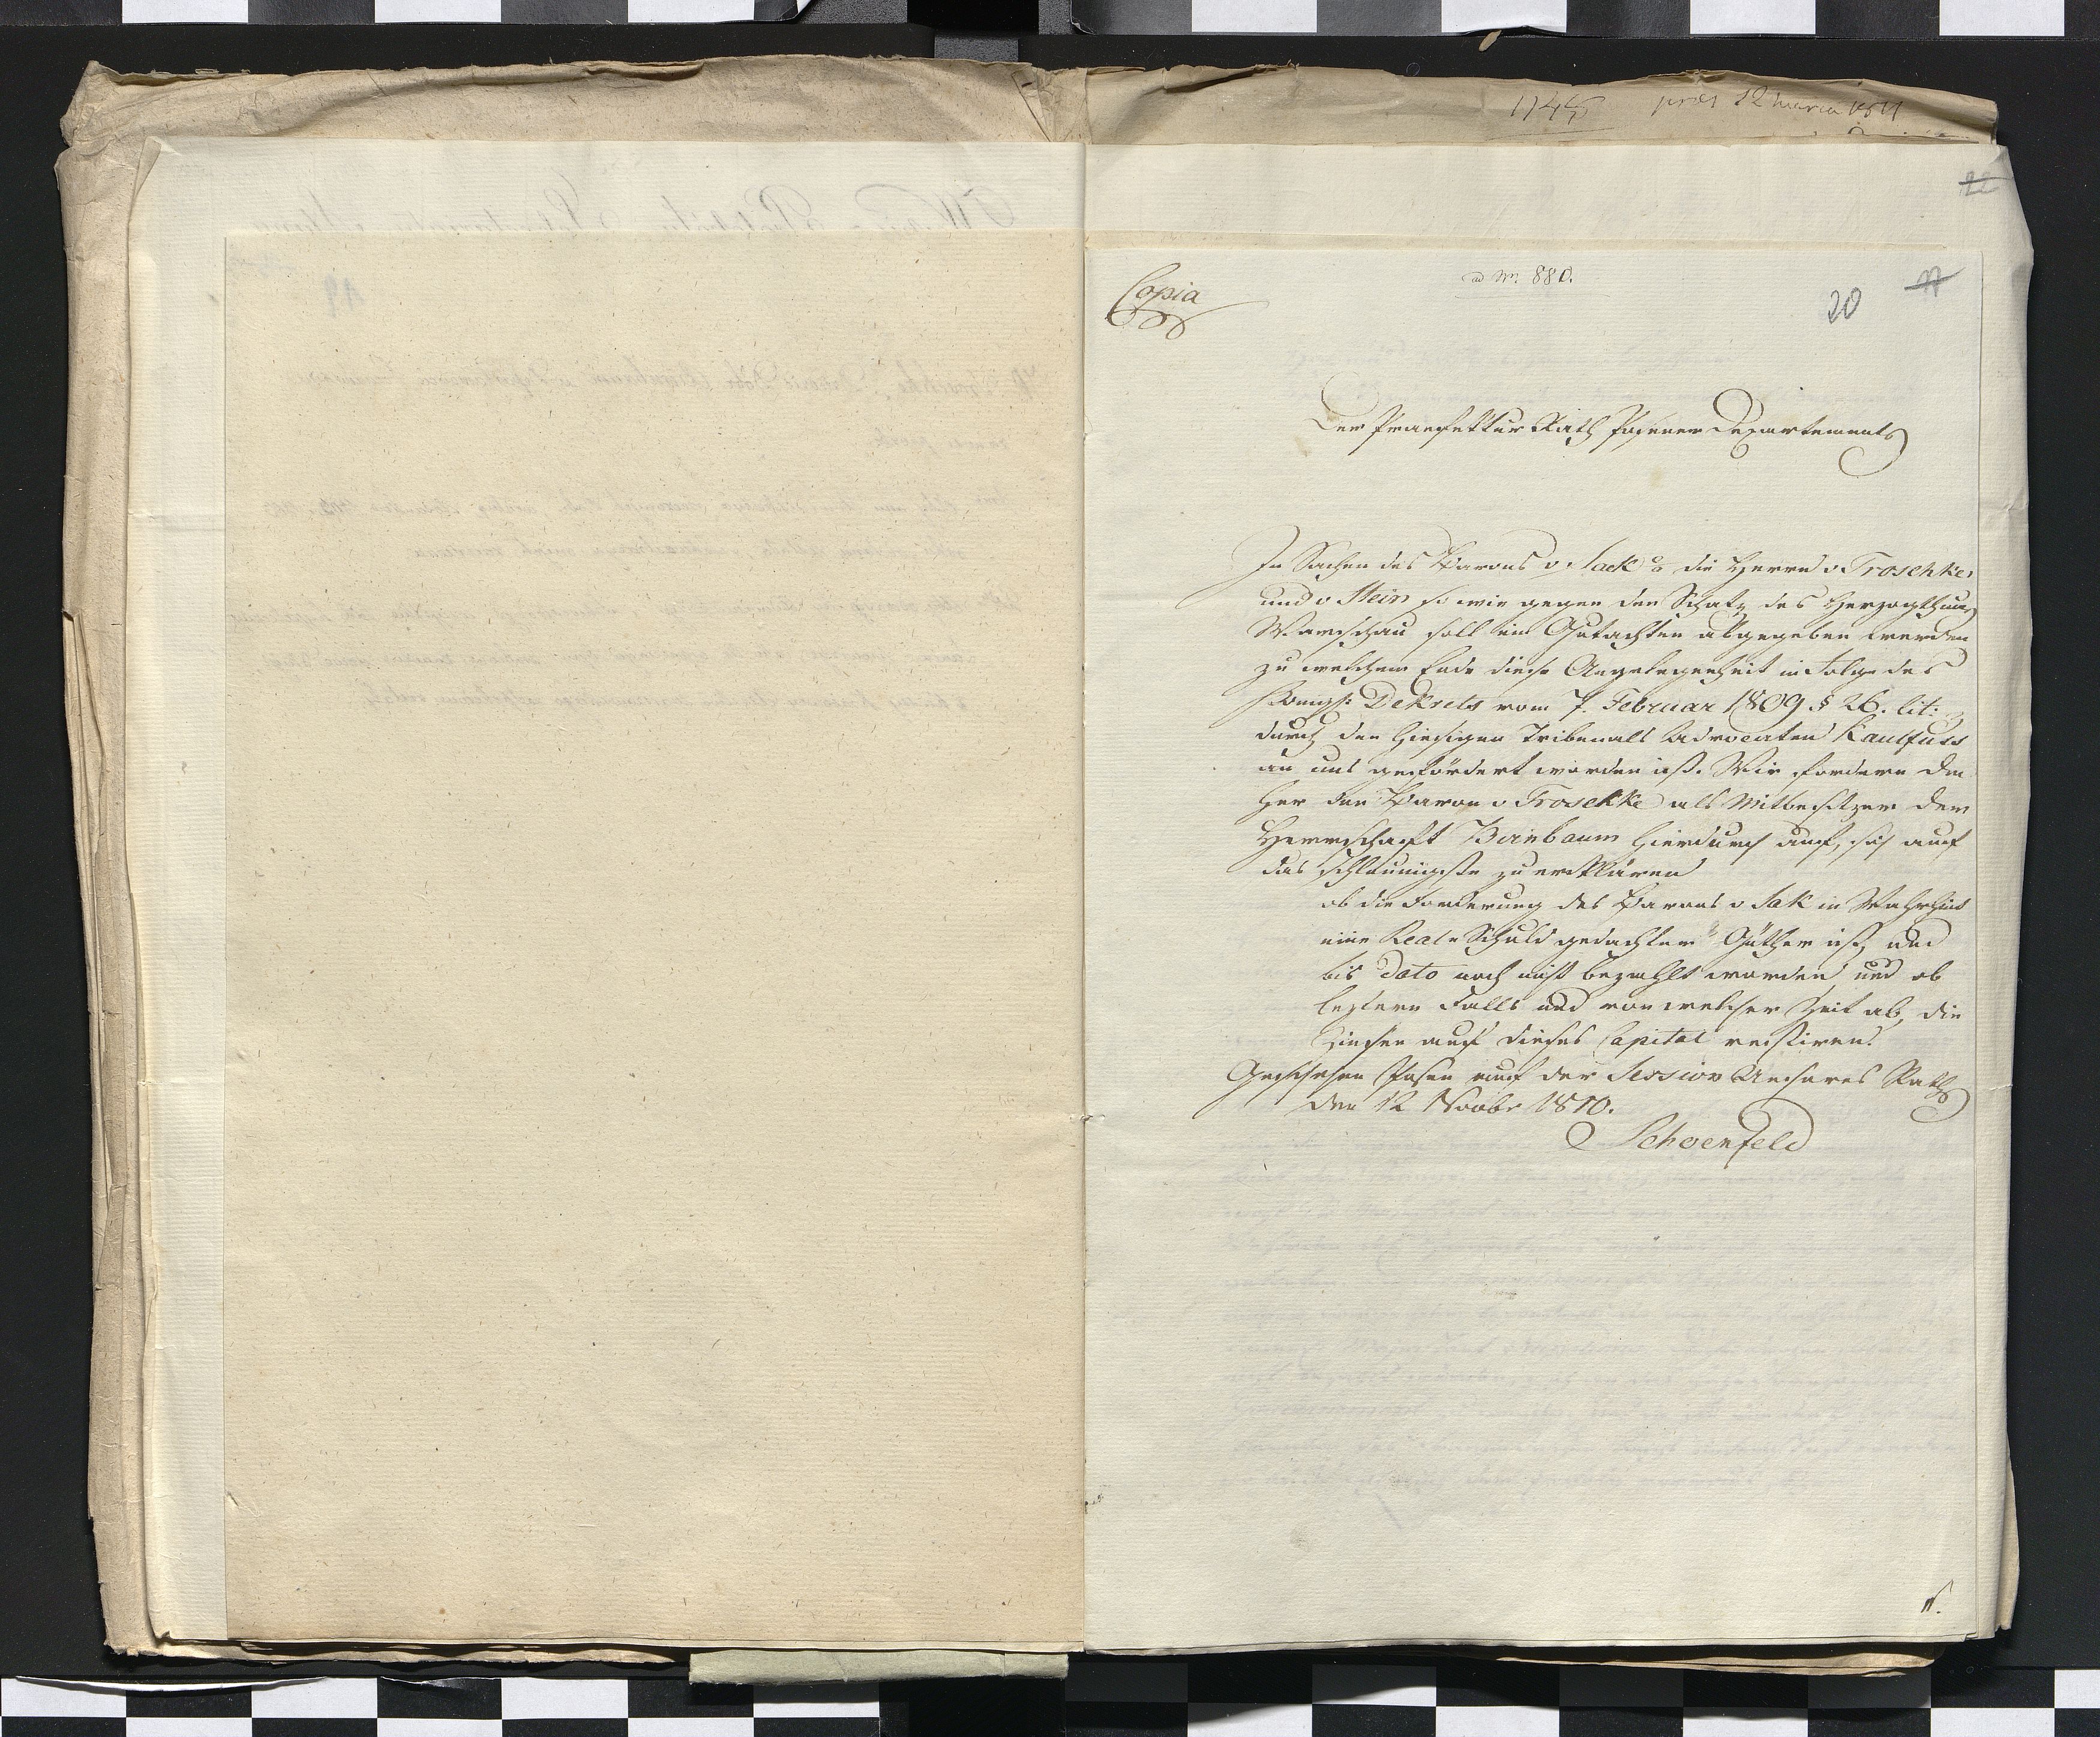 1145 pres 12 marca 1811
22
Copia
ad Nr. 880.
17
20
Der Praefektur Rath Posener Departements
In Sachen des Barons v. Sack ca die Herrn v Troschke,
und v Stein so wie gegen den Schatz des Herzogthums
Warschau soll ein Gutachten abgegeben werden
zu welchem Ende diese Angelegenheit in Folge des
Königl: Dekrets vom 7. Februar 1809 § 26. lit:
durch den hiesigen Tribunals Advocaten Kaulfuss
an uns gefördert worden ist. Wir fordern da
her den Baron v Troschke als Mitbesitzer der
Herrschaft Birnbaum hierdurch auf, sich auf
das schleunigste zu erklären
ob die Forderung des Barons v Sak in Wahrheit
eine Real-Schuld gedachter Güther ist, und
bis dato noch nicht bezahlt worden, und ob
leztern Falls und von welcher Zeit ab, die
Zinsen auf dieses Capital restiren.
Geschehen Posen auf der Session Unseres Raths
den 12 Novbr 1810.
Schoenfeld